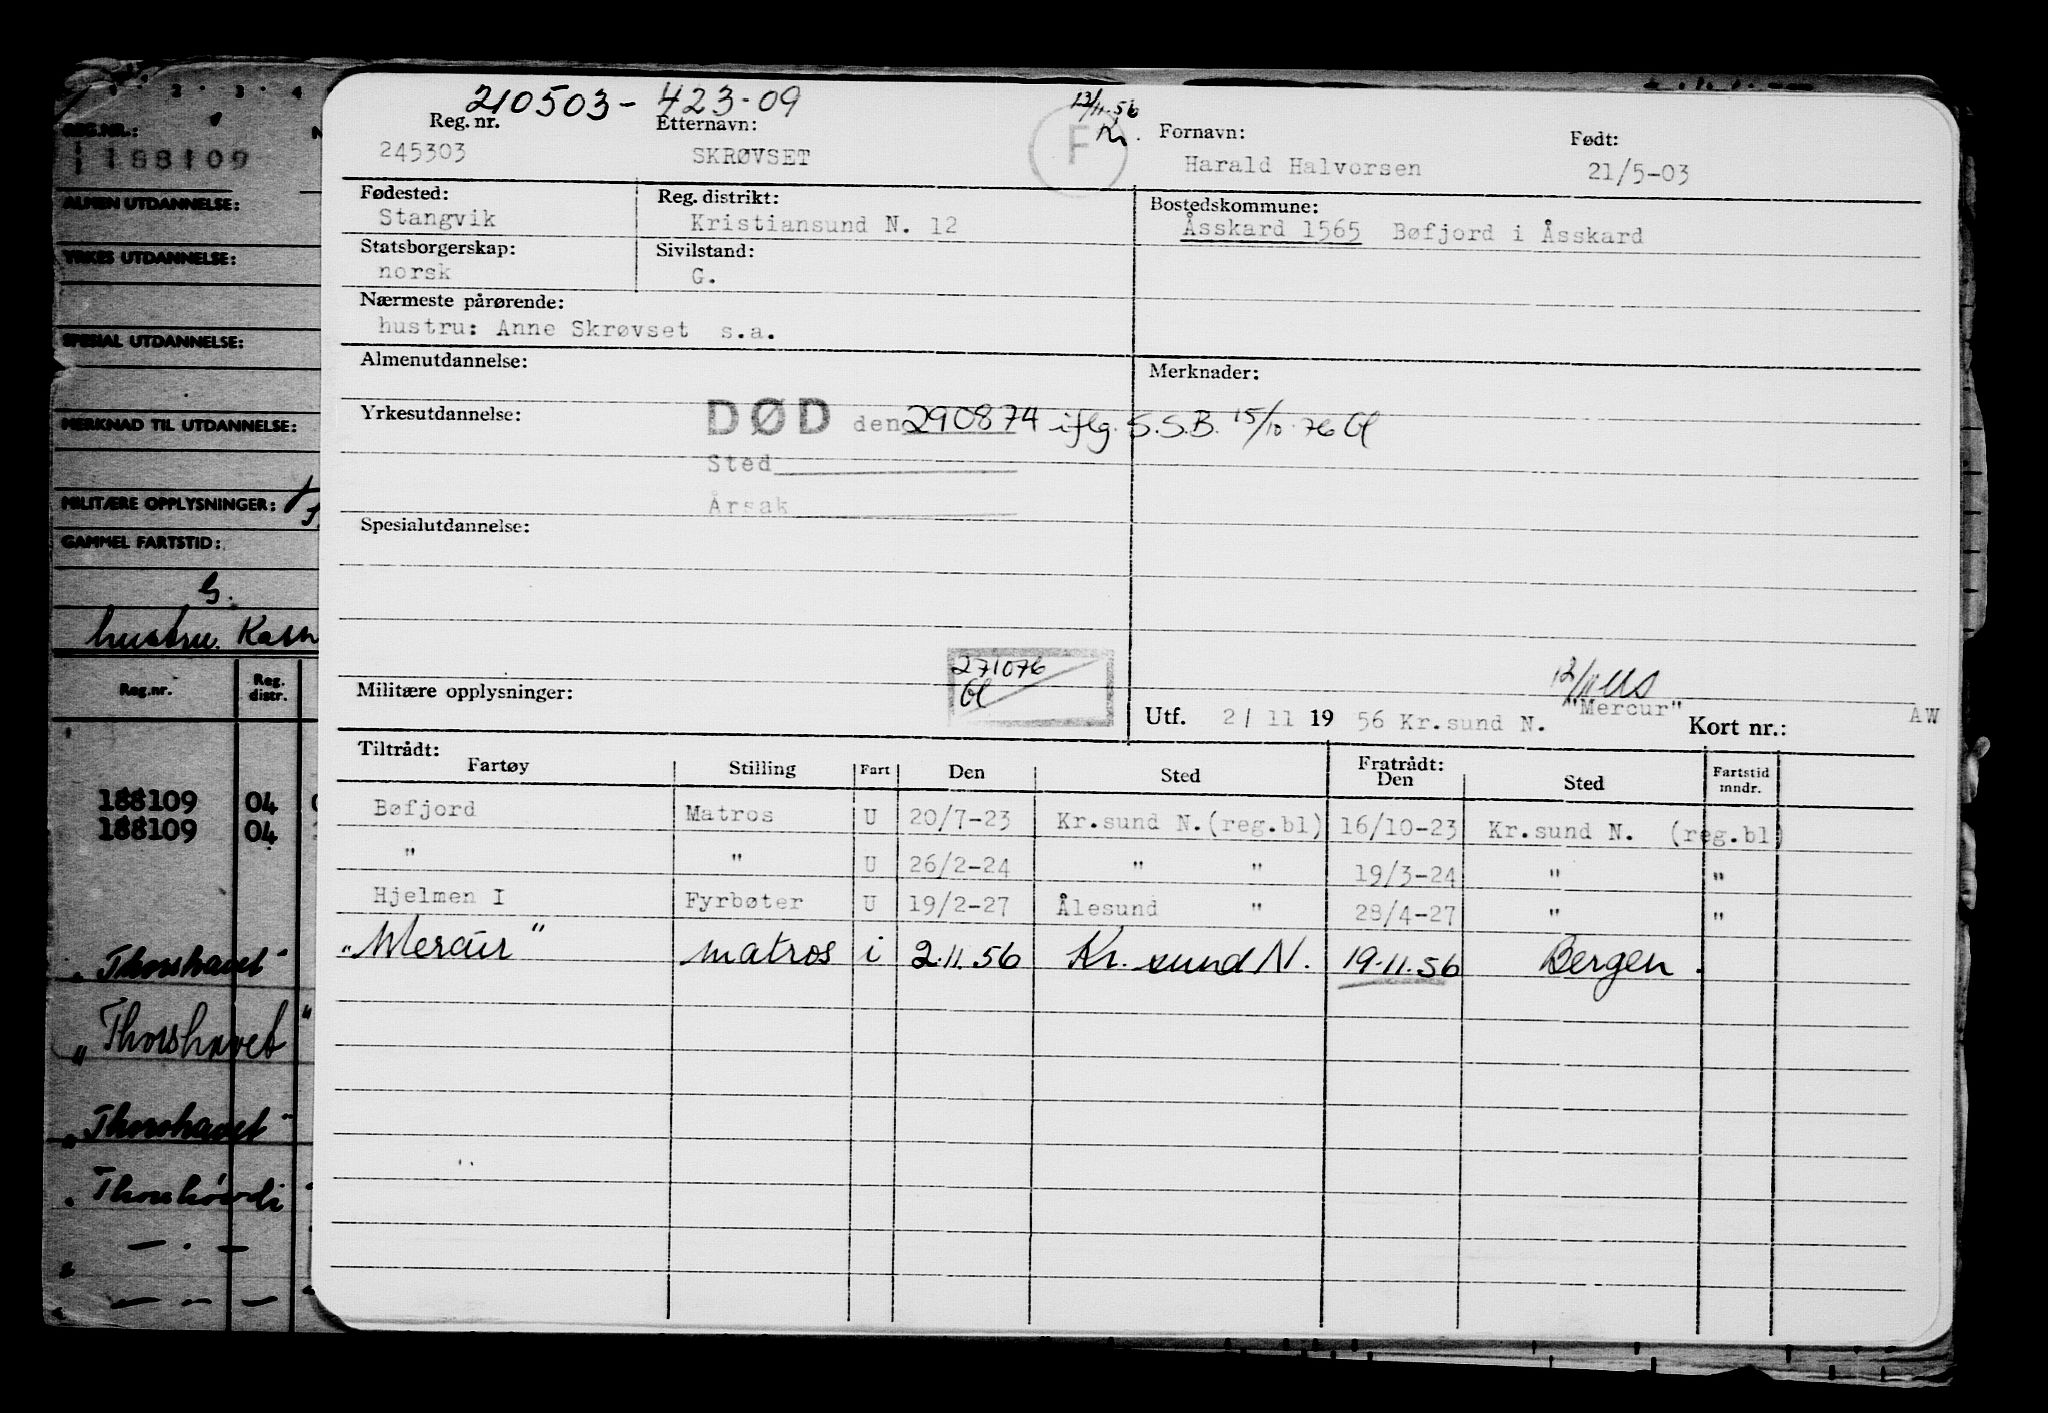 210503-42309
13/11.56
Kr.
F
Reg. nr. Etternavn: Fornavn: Født:
245303 SKRØVSET Harald Halvorsen 21/5-03
Fødested: Reg. distrikt: Bostedskommune:
Stangvik Kristiansund N. 12 Åsskard 1565 Bøfjord i Åsskard
Statsborgerskap: Sivilstand:
norsk G.
Nærmeste pårørende:
hustru: Anne Skrøvset s.a.
Almenutdannelse: Merknader:
Yrkesutdannelse: DØD den 290874 iflg. S.S.B. 15/10.76
Sted
Årsak
Spesialutdannelse:
271076
Militære opplysninger:
Utf. 2/ 11 19 56 Kr.sund N. "Mercur" Kort nr.: AW
Tiltrådt: Fratrådt:
Fartøy Stilling Fart Den Sted Den Sted Fartstid mndr.
Bøfjord Matros U 20/7-23 Kr.sund N.(reg.bl) 16/10-23 Kr.sund N. (reg.bl)
" " U 26/2-24 " " 19/3-24 " "
Hjelmen I Fyrbøter U 19/2-27 Ålesund " 28/4-27 " "
"Mercur" matros i 2.11.56 Kr.sund N. 19.11.56 Bergen.
1 2 3 4
REG.NR.:
188109
ALMEN UTDANNELSE:
YRKES UTDANNELSE:
SPESIAL UTDANNELSE:
MERKNAD TIL UTDANNELSE:
MILITÆRE OPPLYSNINGER:
GAMMEL FARTSTID:
G.
hustru.
Reg.nr. Reg. distr.
188109 04
188109 04
"Thorshavet"
"Thorshavet"
"Thorshavet"
"Thorshøvdi"
— . —
— — —